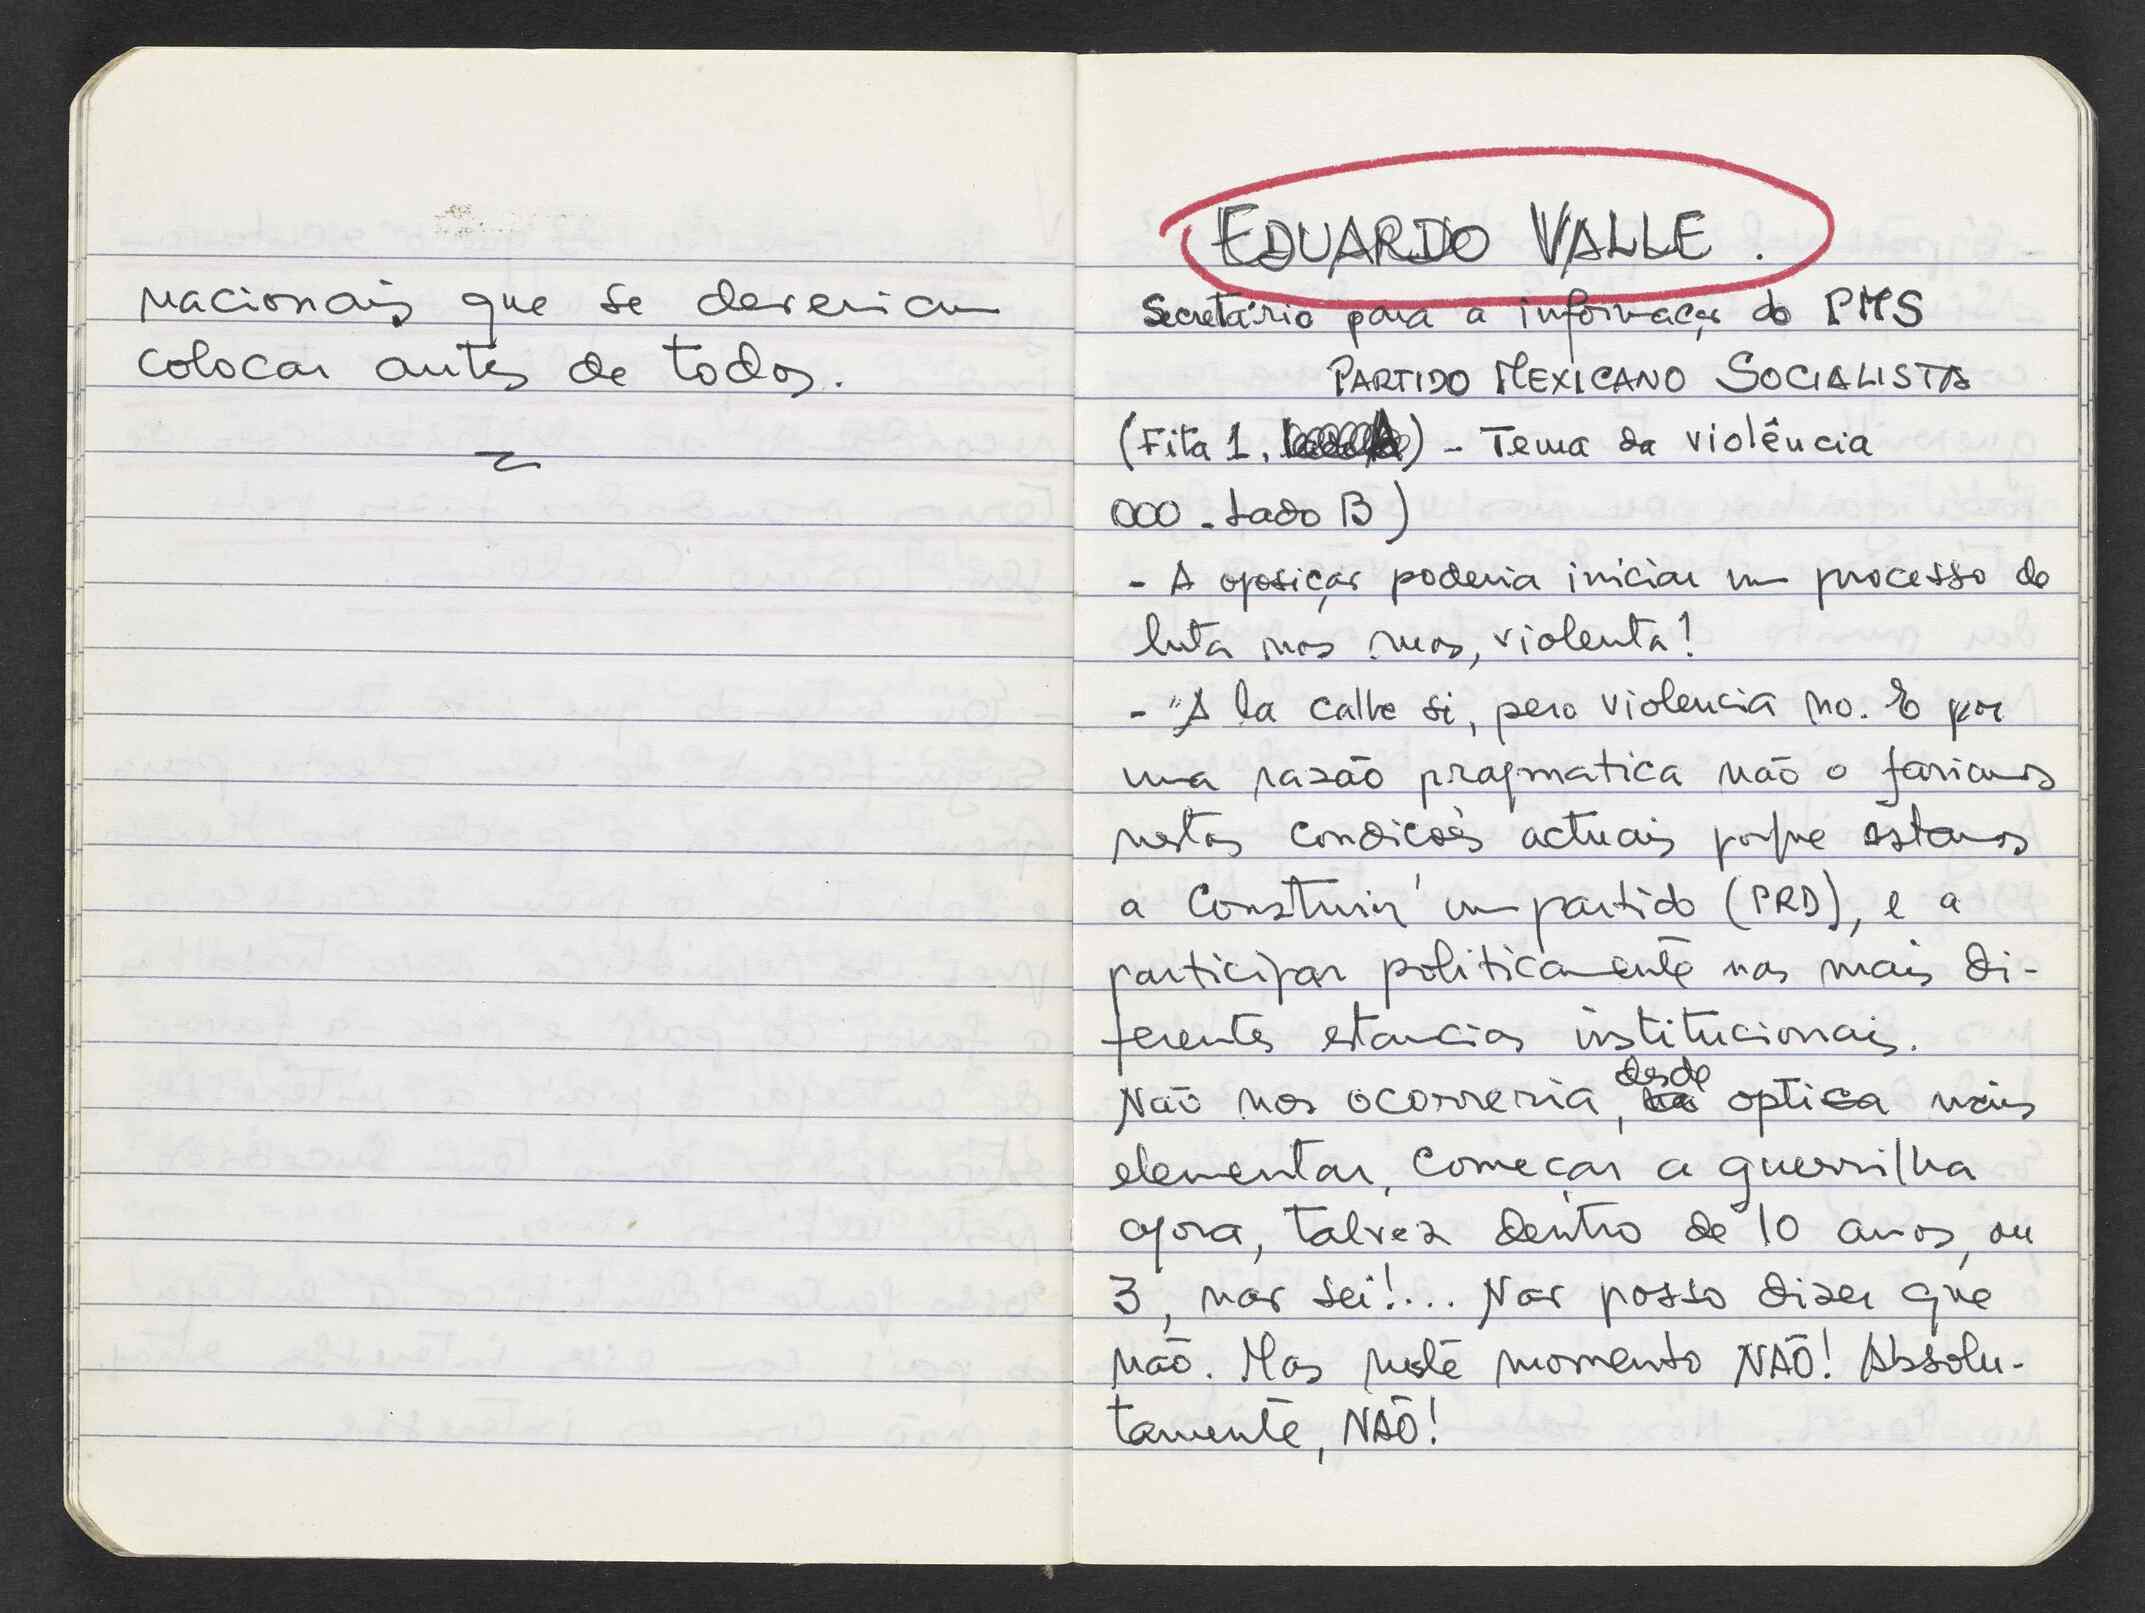 nacionais que se deveriam
colocar antes de todos.
EDUARDO VALLE.
Secretário para a informação do PMS
PARTIDO MEXICANO SOCIALISTA
(Fita 1, ) - Tema da violência
000 - Lado B)
- A oposição poderia iniciar um processo de
luta nas ruas, violenta!
- "A la calle si, pero violencia no. E por
uma razão pragmatica não o fariamos
nestas condições actuais porque estamos
a construir um partido (PRD), e a
participar politicamente nas mais di-
ferentes estancias institucionais.
Não nos ocorreria, desde optica mais
elementar, começar a guerrilha
agora, talvez dentro de 10 anos, ou
3, não sei!... Não posso dizer que
não. Mas neste momento NÃO! Absolu-
tamente, NÃO!